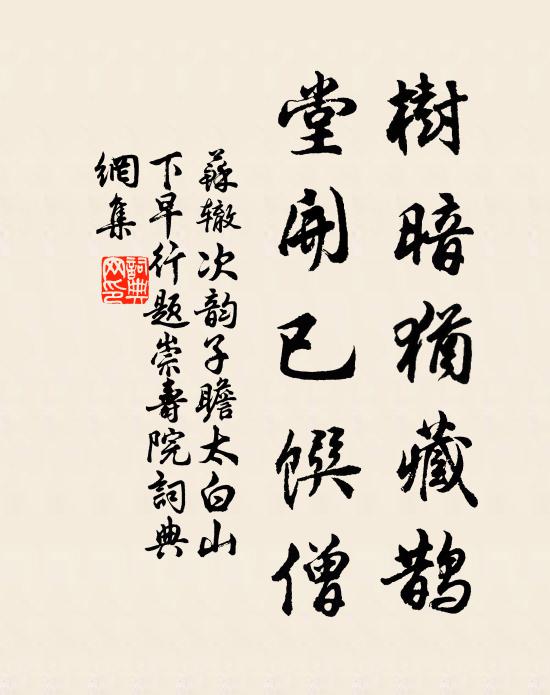 樹暗猶藏鵲
堂開已饌僧
蘇轍次韵子瞻太白山
下早行題崇壽院詞典
網集
詞典網印